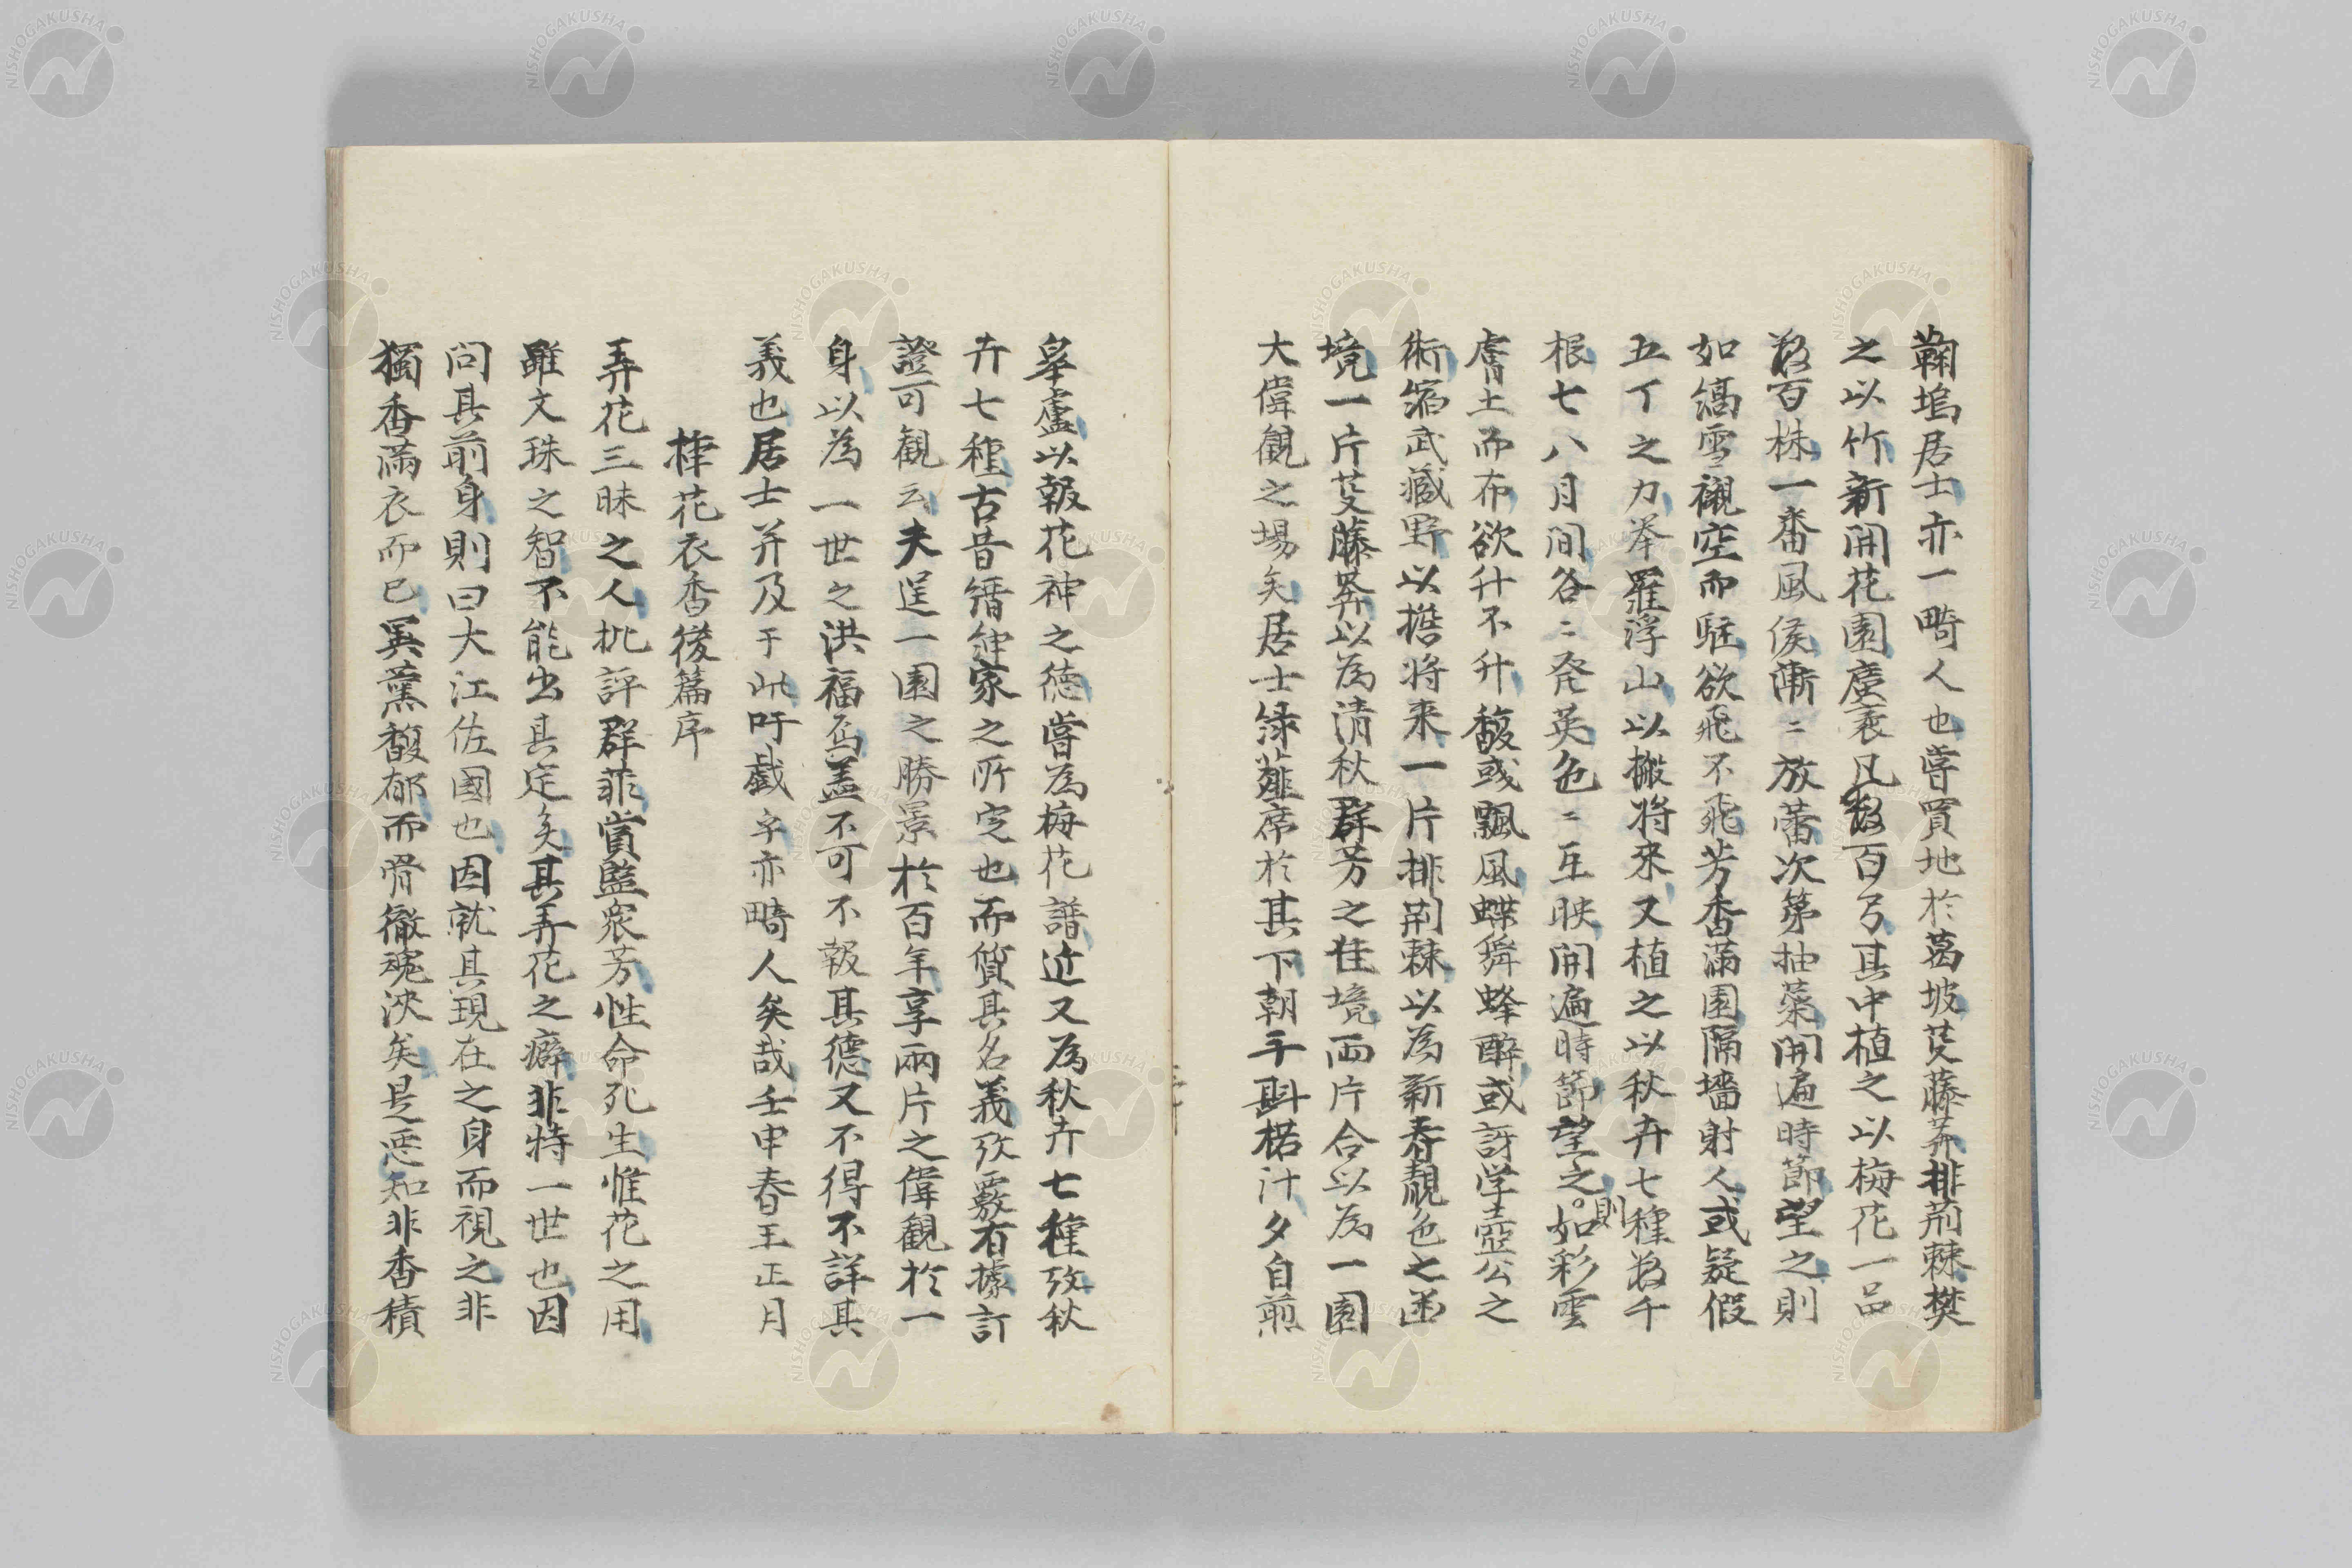 鞠塢居士亦一畸人也嘗買地於葛坡芟藤莽排荊棘樊
之以竹新開花園廣袤凡数百弓其中植之以梅花一品
数百株一番風候漸〻放蕾次第抽蘂開遍時節望之則
如縞雪襯空而駐欲飛不飛芳香満園隔墻射人或疑假
五丁之力挙羅浮山以搬将来又植之以秋卉七種数千
根七八月間谷〻発英色〻互映開遍時節望之則如彩雲
膚土而布欲升不升馥或飄風蝶舞蜂酔或訝学壺公之
術縮武蔵野以携将来一片排荊棘以為新春靚色之
境一片芟藤莽以為清秋群芳之佳境両片合以為一園
大偉観之場矣居士緑薤席於其下朝手斟楉汁夕自煎
皐盧以報花神之徳嘗為梅花譜近又為秋卉七種攷秋
卉七種古昔縉紳家之所定也而質其名義攷覈有據訂
證可観云夫逞一園之勝景於百年享兩片之偉観於一
身以為一世之洪福焉盖不可不報其德又不得不詳其
義也居士并及于此吁戯字亦畸人矣哉壬申春王正月
椲花衣香後篇序
弄花三昧之人批評群菲賞監衆芳性命死生惟花之用
雖文珠之智不能出其定矣其弄花之癖非特一世也因
問其前身則曰大江佐國也因就其現在之身而視之非
獨香満衣而已異薫馥郁而骨徹魂浹矣是悪知非香積